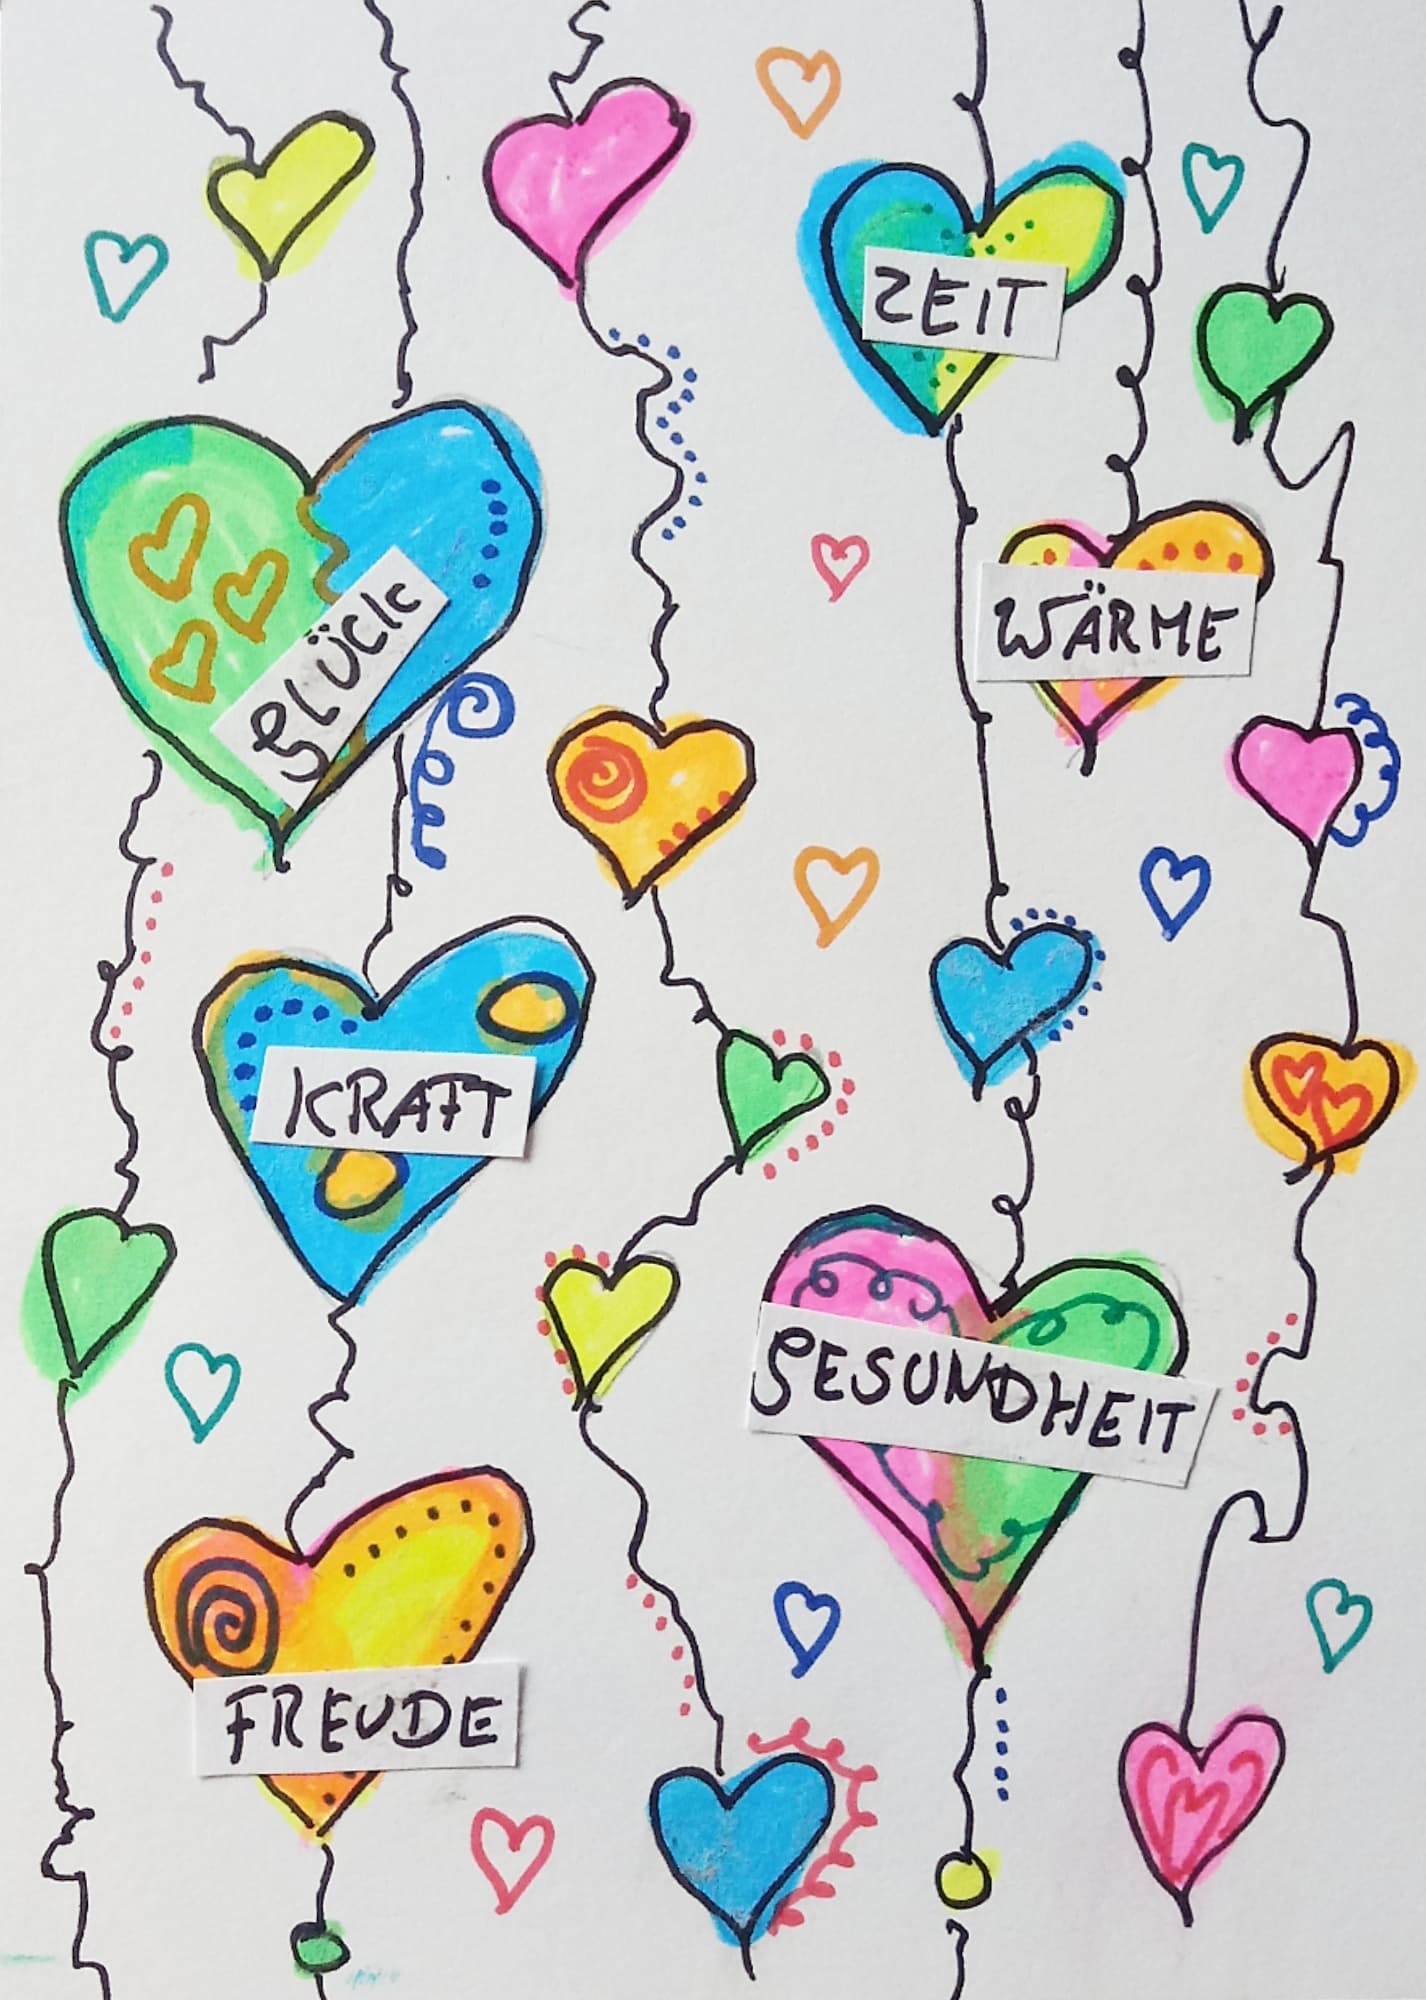 ZEIT
GLÜCK
WÄRME
KRAFT
GESUNDHEIT
FREUDE